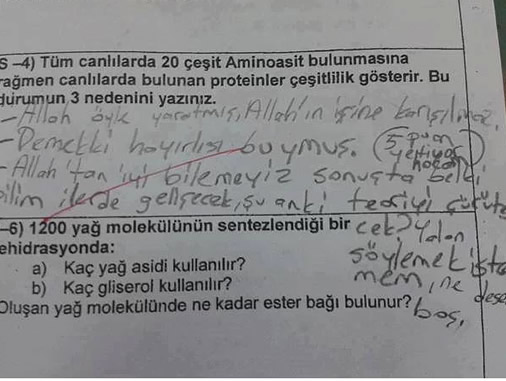 S -4) Tüm canlılarda 20 çeşit Aminoasit bulunmasına
rağmen canlılarda bulunan proteinler çeşitlilik gösterir. Bu
durumun 3 nedenini yazınız.
- Allah öyle yaratmış, Allah'ın işine karışılmaz.
- Demekki hayırlısı buymuş. (5 puan yetiyor hocam)
- Allah'tan iyi bilemeyiz sonuçta belki
bilim ilerde gelişecek, şu anki teoriyi çürüte
cek? Yalan
söylemek iste
mem, ne dese
boş.
-6) 1200 yağ molekülünün sentezlendiği bir
ehidrasyonda:
a) Kaç yağ asidi kullanılır?
b) Kaç gliserol kullanılır?
Oluşan yağ molekülünde ne kadar ester bağı bulunur?